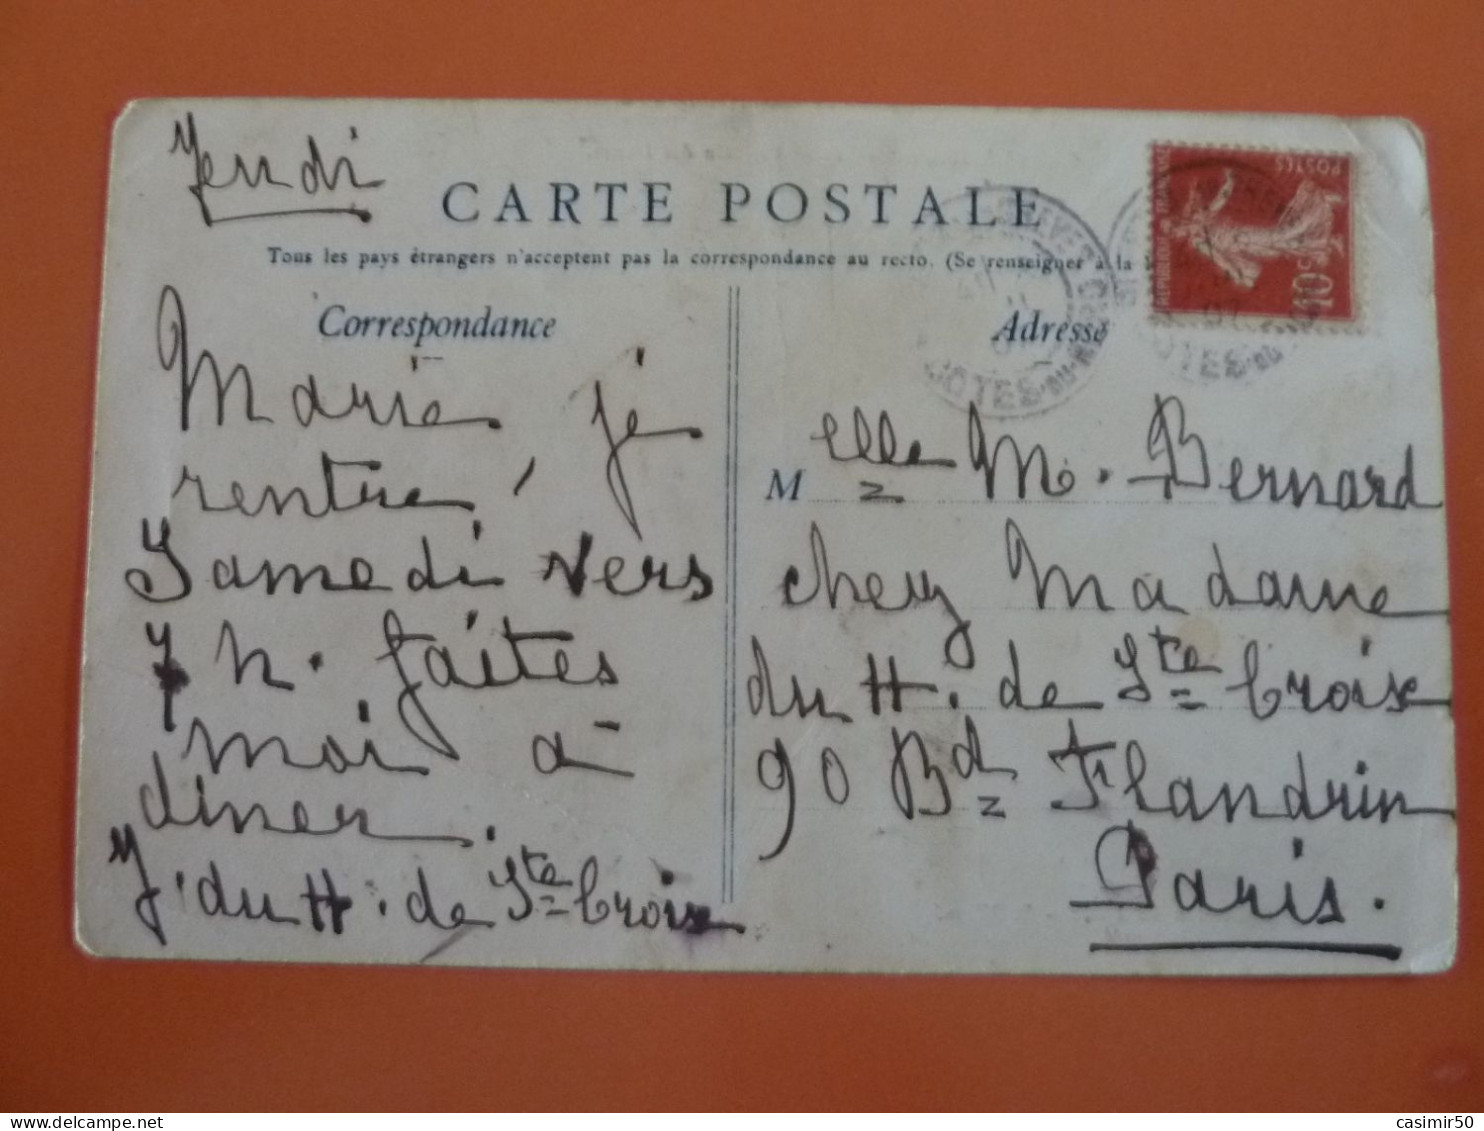 Jeudi
CARTE POSTALE
Tous les pays étrangers n'acceptent pas la correspondance au recto. (Se renseigner à la
Correspondance
Marie, je
rentre,
Samedi vers
7 h. faites
moi à
diner.
J. du H. de Ste Croix
Adresse
Melle M. Bernard
chez Madame
du H. de Ste Croix
90 Bd Flandrin
Paris.
POSTES
10c
COTES-DU-NORD
COTES-DU-
casimir50
www.delcampe.net